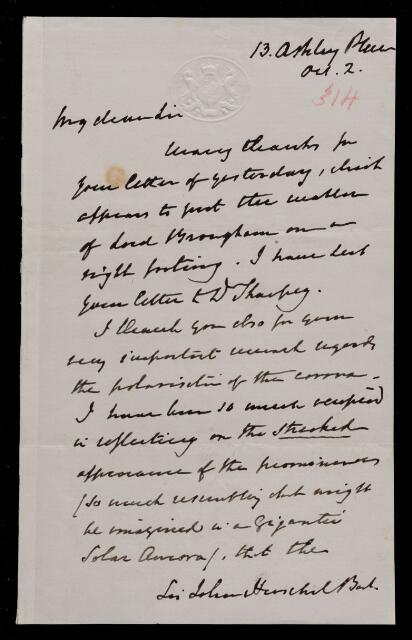 13. Ashley Place
Oct. 2.
314
My dear Sir
Many thanks for
your letter of yesterday, which
appears to put the matter
of Lord Brougham on a
right footing. I have sent
your letter to Dr Sharpey.
I thank you also for your
very important remark regards
the polarisation of the corona.
I have been so much occupied
in reflecting on the streaked
appearance of the prominences
(so much resembling what might
be imagined in a gigantic
Solar Aurora), that the
Sir John Herschel Bart.